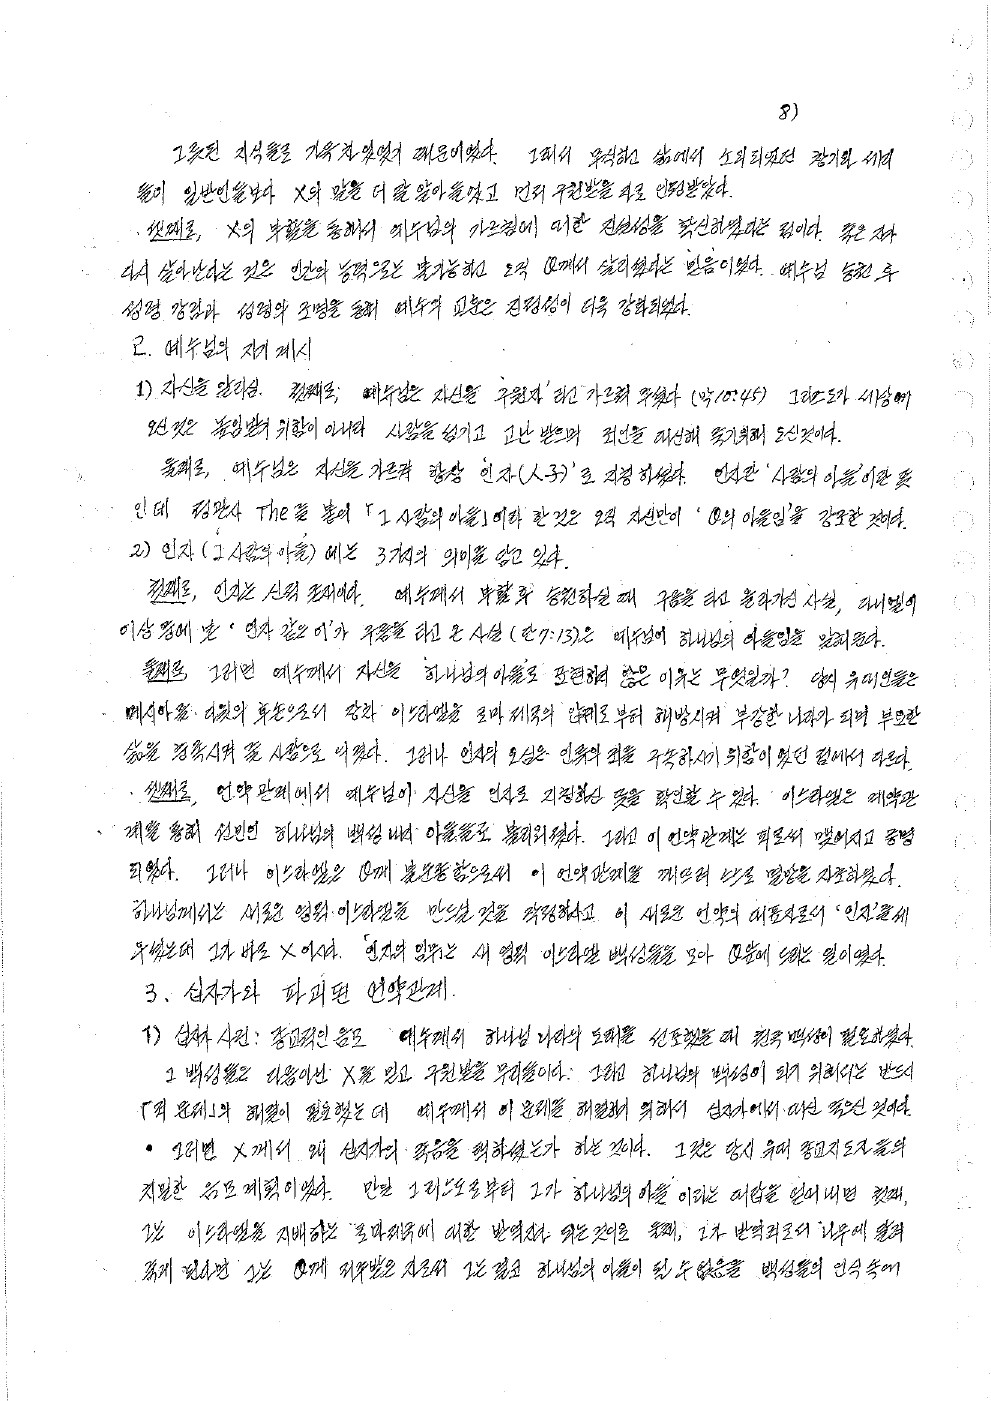 8)
그릇된 지식들로 가득차 있었기 때문이었다. 그래서 무식하고 삶에서 소외되었던 창기와 세리
들이 일반인들보다 X의 말을 더 잘 알아들었고 먼저 구원받을 자로 인정받았다.
셋째로, X의 부활을 통해서 예수님의 가르침에 대한 진실성을 확신하였다는 점이다. 죽은 자가
다시 살아난다는 것은 인간의 능력으로는 불가능하고 오직 Θ께서 살리셨다는 믿음이었다. 예수님 승천 후
성령 강림과 성령의 조명을 통해 예수의 교훈은 진정성이 더욱 강화되었다.
2. 예수님의 자기 계시
1) 자신을 알리심. 첫째로, 예수님은 자신을 '구원자'라고 가르쳐 주셨다 (막10:45) 그리스도가 세상에
오신 것은 높임받기 위함이 아니라 사람을 섬기고 고난 받으며 죄인을 대신해 죽기위해 오신것이다.
둘째로, 예수님은 자신을 가르켜 항상 '인자(人子)'로 지칭하셨다. 인자란 '사람의 아들'이란 뜻
인데 정관사 The를 붙여 「그 사람의 아들」이라 한 것은 오직 자신만이 'Θ의 아들임'을 강조한 것이다.
2) 인자 (그 사람의 아들) 에는 3가지의 의미를 담고 있다.
첫째로, 인자는 신적 존재이다. 예수께서 부활 후 승천하실 때 구름을 타고 올라가신 사실, 다니엘이
이상 중에 본 '인자 같은 이'가 구름을 타고 온 사실 (단7:13)은 예수님이 하나님의 아들임을 말해준다.
둘째로, 그러면 예수께서 자신을 '하나님의 아들'로 표현하지 않은 이유는 무엇일까? 당시 유대인들은
메시아를 다윗의 후손으로서 장차 이스라엘을 로마 제국의 압제로부터 해방시켜 부강한 나라가 되며 부요한
삶을 경험시켜 줄 사람으로 여겼다. 그러나 인자의 오심은 인류의 죄를 구속하시기 위함이었던 점에서 다르다.
셋째로, 언약 관계에서 예수님이 자신을 인자로 지칭하신 뜻을 확인할 수 있다. 이스라엘은 계약관
계를 통해 선민인 하나님의 백성 내지 아들들로 불리워졌다. 그리고 이 언약관계는 피로써 맺어지고 증명
되었다. 그러나 이스라엘은 Θ께 불순종함으로써 이 언약관계를 깨뜨려 스스로 멸망을 자초하였다.
하나님께서는 새로운 영적 이스라엘을 만드실 것을 작정하시고 이 새로운 언약의 대표자로서 '인자'를 세
우셨는데 그가 바로 X 이시다. 「인자의 임무」는 새 영적 이스라엘 백성들을 모아 Θ앞에 드리는 일이었다.
3. 십자가와 파괴된 언약관계.
1) 십자가 사건 : 종교적인 음모 예수께서 하나님 나라의 도래를 선포했을 때 천국 백성이 필요하였다.
그 백성들은 다름아닌 X를 믿고 구원받을 무리들이다. 그리고 하나님의 백성이 되기 위해서는 반드시
「죄 문제」의 해결이 필요했는데 예수께서 이 문제를 해결하기 위해서 십자가에서 대신 죽으신 것이다.
• 그러면 X께서 왜 십자가의 죽음을 택하셨는가 하는 것이다. 그것은 당시 유대 종교지도자들의
치밀한 음모 계획이었다. 만일 그리스도로부터 그가 '하나님의 아들'이라는 대답을 얻어내면 첫째,
그는 이스라엘을 지배하는 로마제국에 대한 반역자가 되는것이요 둘째, 그가 반역죄로서 나무에 달려
죽게 된다면 그는 Θ께 저주받은 자로써 그는 결코 하나님의 아들이 될 수 없음을 백성들의 인식 속에